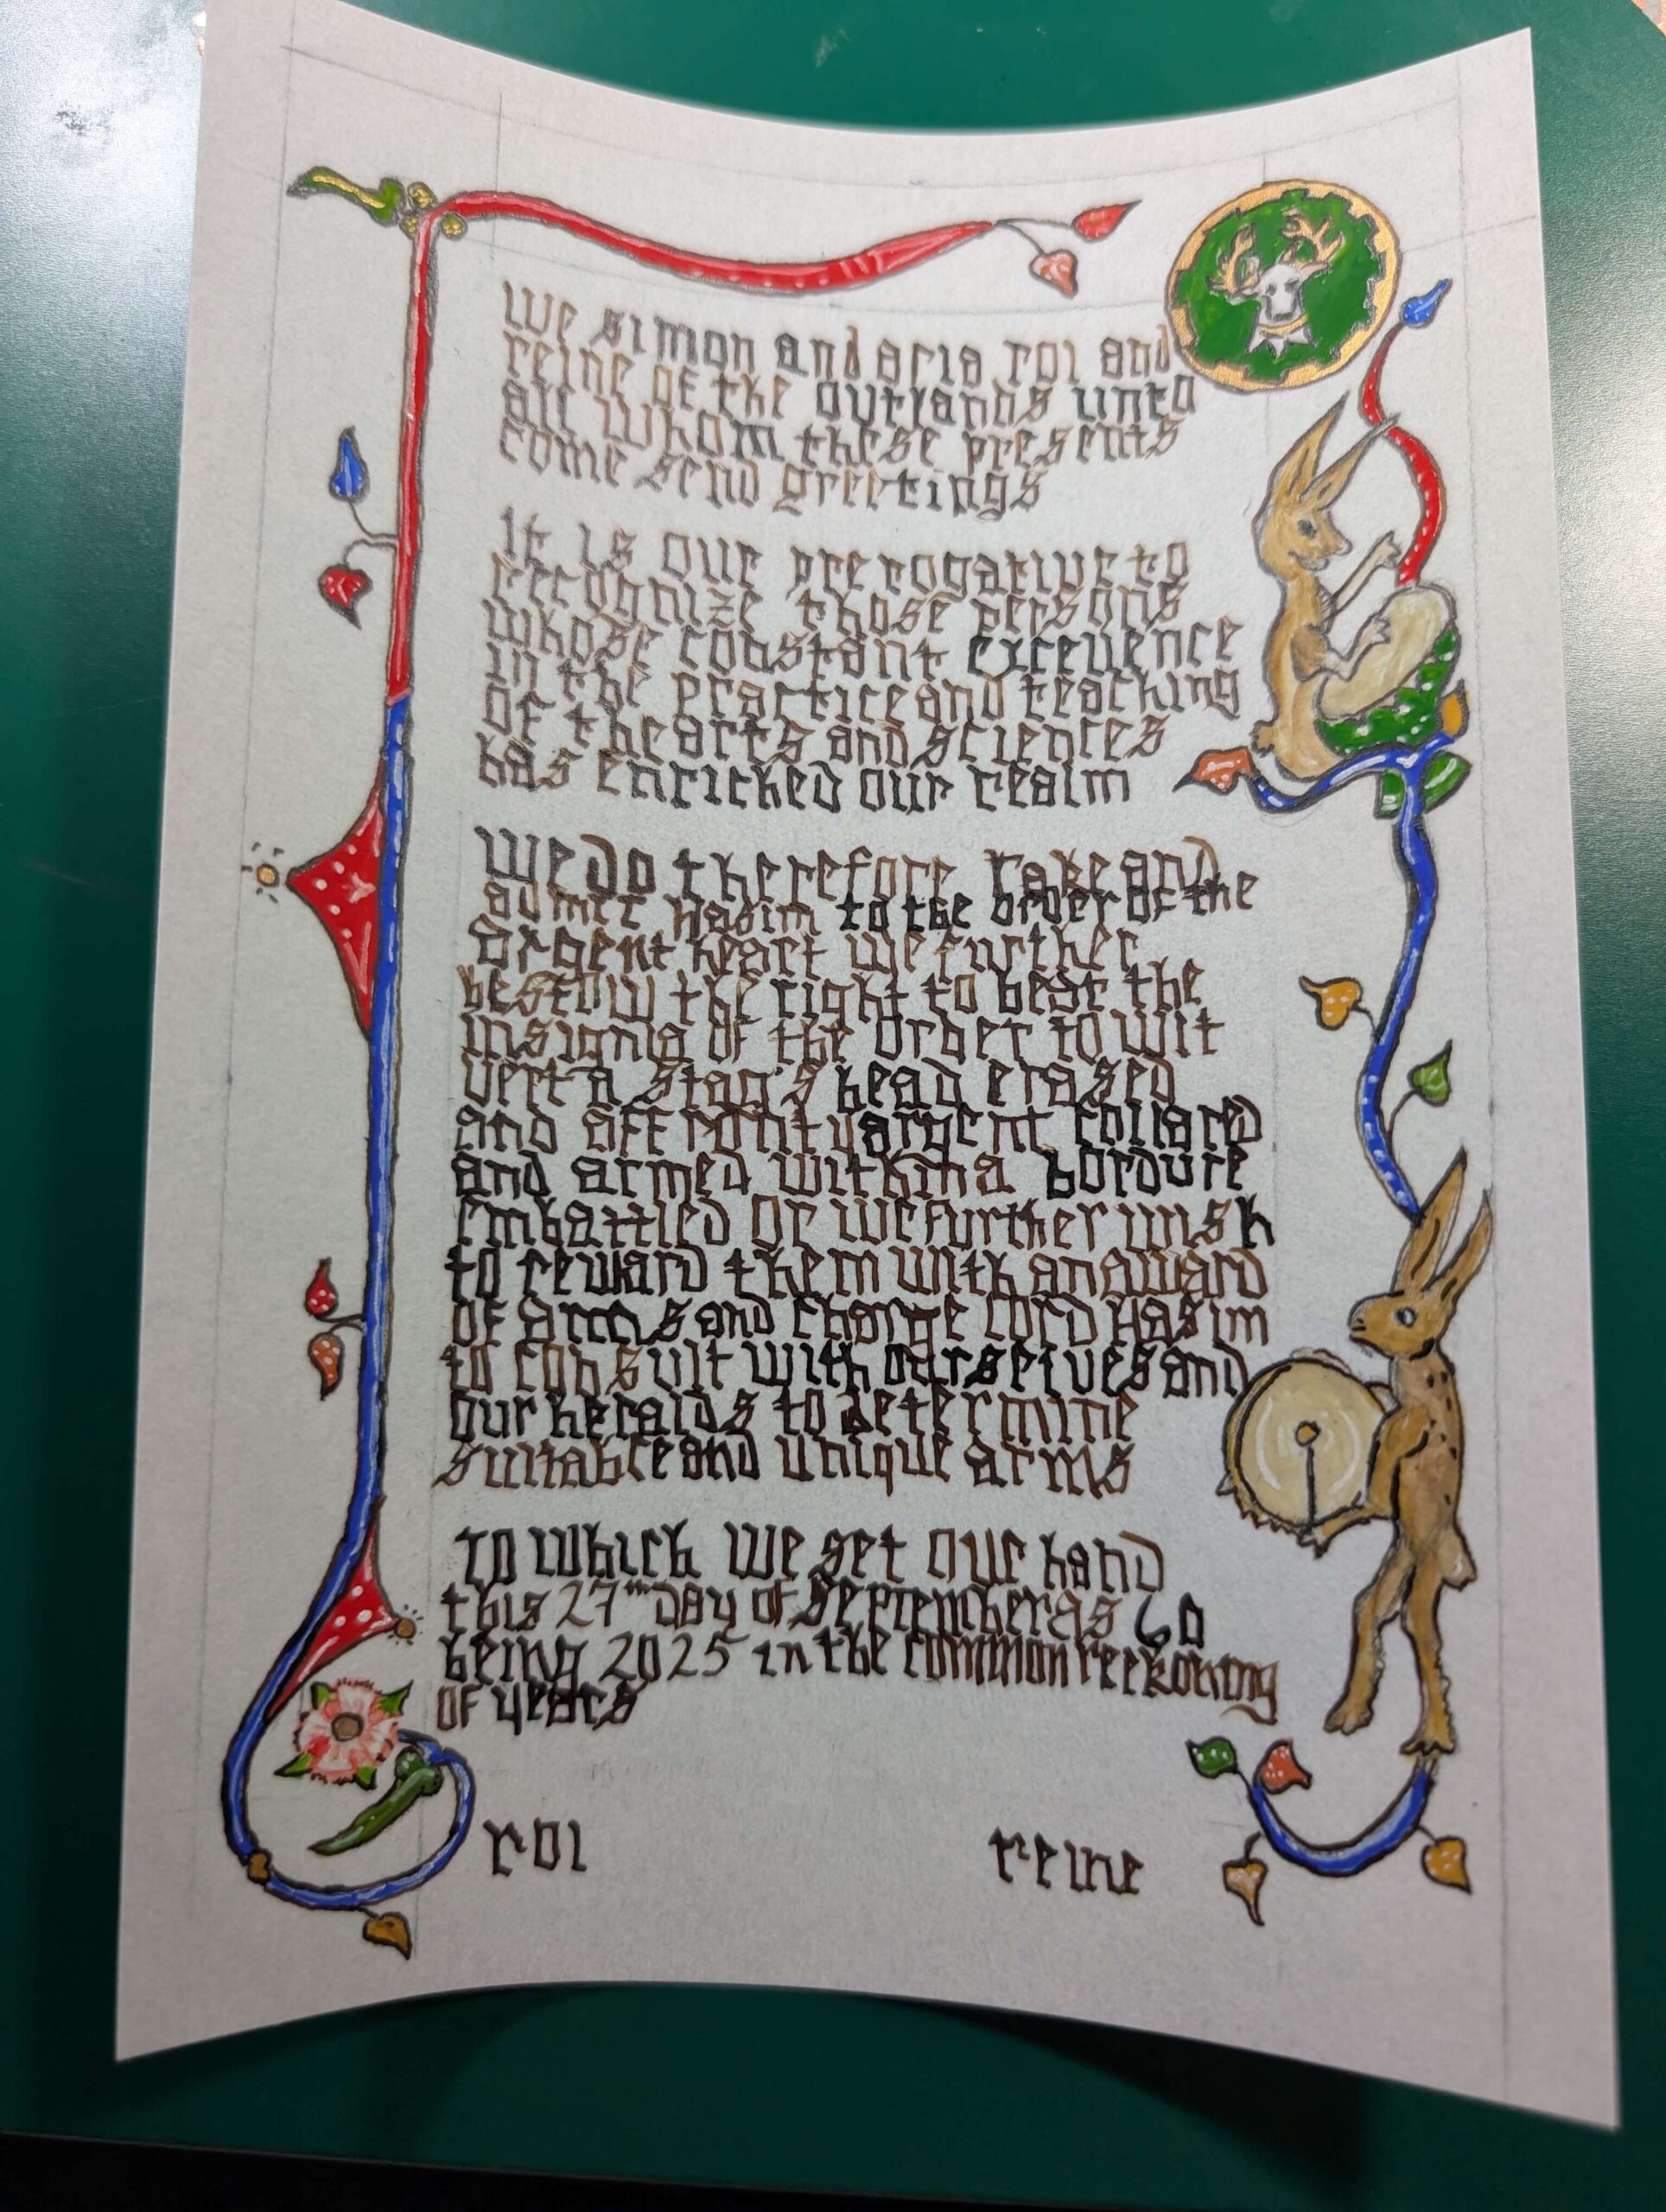 We simon and aria roi and
reine of the outlands unto
all whom these presents
come send greetings
It is our prerogative to
recognize those persons
whose constant excellence
in the practice and teaching
of the arts and sciences
has enriched our realm
We do therefore take and
admit Hasim to the order of the
Argent heart we further
bestow the right to bear the
insignia of the order to wit
vert a stag's head erased
and affronty argent collared
and armed within a bordure
embattled or we further wish
to reward them with an award
of arms and charge lord Hasim
to consult with ourselves and
our heralds to determine
suitable and unique arms
to which we set our hand
this 27th day of September as 60
being 2025 in the common reckoning
of years
roi reine